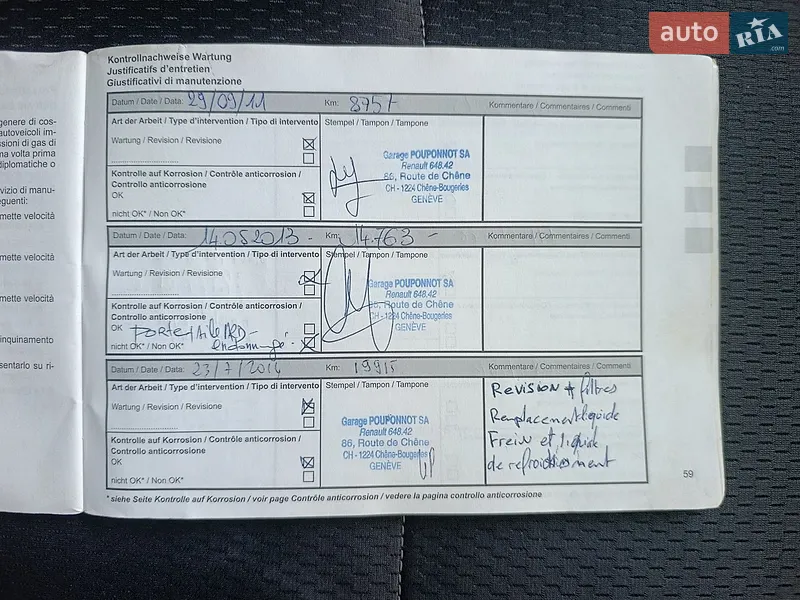 auto RIA.com
Kontrollnachweise Wartung
Justificatifs d'entretien
Giustificativi di manutenzione
genere di cos-
autoveicoli im-
ssioni di gas di
na volta prima
diplomatiche o
vizio di manu-
eguenti:
mette velocità
mette velocità
mette velocità
inquinamento
sentarlo su ri-
Datum / Date / Data: 29/09/11 Km: 8757 Kommentare / Commentaires / Commenti
Art der Arbeit / Type d'intervention / Tipo di intervento Stempel / Tampon / Tampone
Wartung / Revision / Revisione
Kontrolle auf Korrosion / Contrôle anticorrosion /
Controllo anticorrosione
OK
nicht OK* / Non OK*
Garage POUPONNOT SA
Renault 648.42
86, Route de Chêne
CH - 1224 Chêne-Bougeries
GENÈVE
Datum / Date / Data: 14.05.2013 - Km: 14.763 - Kommentare / Commentaires / Commenti
Art der Arbeit / Type d'intervention / Tipo di intervento Stempel / Tampon / Tampone
Wartung / Revision / Revisione
Kontrolle auf Korrosion / Contrôle anticorrosion /
Controllo anticorrosione
OK Porte / Aile ARD -
nicht OK* / Non OK* endommagé.
Garage POUPONNOT SA
Renault 648.42
86, Route de Chêne
CH - 1224 Chêne-Bougeries
GENÈVE
Datum / Date / Data: 23/7/2014 Km: 19915 Kommentare / Commentaires / Commenti
Art der Arbeit / Type d'intervention / Tipo di intervento Stempel / Tampon / Tampone
Wartung / Revision / Revisione
Kontrolle auf Korrosion / Contrôle anticorrosion /
Controllo anticorrosione
OK
nicht OK* / Non OK*
Garage POUPONNOT SA
Renault 648.42
86, Route de Chêne
CH - 1224 Chêne-Bougeries
GENÈVE
Revision + filtres
Remplacement liquide
Frein et liquide
de refroidissement
* siehe Seite Kontrolle auf Korrosion / voir page Contrôle anticorrosion / vedere la pagina controllo anticorrosione
59